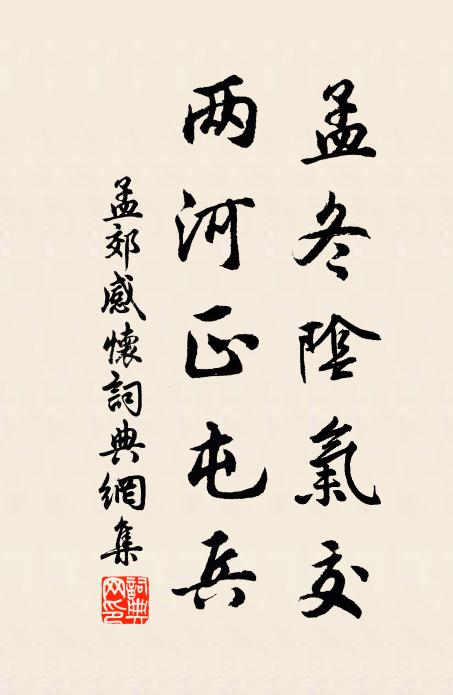 孟冬陰氣交
两河正屯兵
孟郊感懷詞典網集
詞典網印